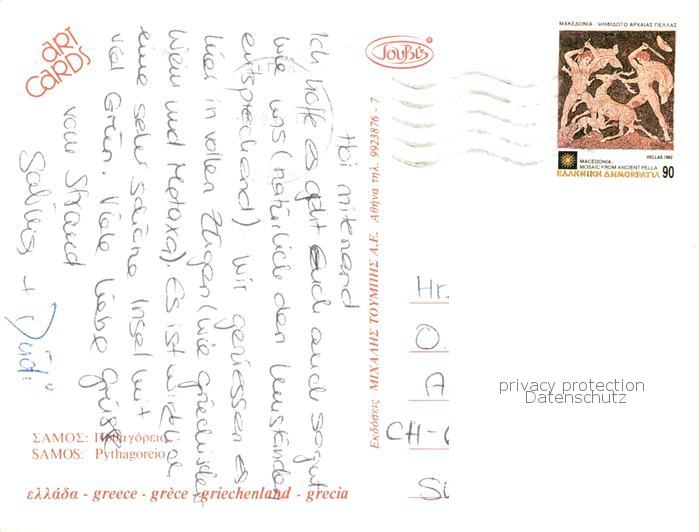 ART
CARDS
Hoi mitenand
Ich hoffe es geht Euch auch so gut
wie uns (natürlich den Umständen
entsprechend). Wir geniessen es
hier in vollen Zügen (wie griechischer
Wein und Metaxa). Es ist wirklich
eine sehr schöne Insel mit
viel Grün. Viele liebe Grüsse
vom Strand
Sabina + 
ΣΑΜΟΣ: Πυθαγόρειο
SAMOS: Pythagoreio
ελλάδα - greece - grèce - griechenland - grecia
Εκδόσεις ΜΙΧΑΛΗΣ ΤΟΥΜΠΗΣ Α.Ε. Αθήνα τηλ. 9923876 - 7
Toubi's
ΜΑΚΕΔΟΝΙΑ - ΨΗΦΙΔΩΤΟ ΑΡΧΑΙΑΣ ΠΕΛΛΑΣ
HELLAS 1992
MACEDONIA -
MOSAIC FROM ANCIENT PELLA
ΕΛΛΗΝΙΚΗ ΔΗΜΟΚΡΑΤΙΑ 90
Hr.
O.
A
CH-
privacy protection
Datenschutz